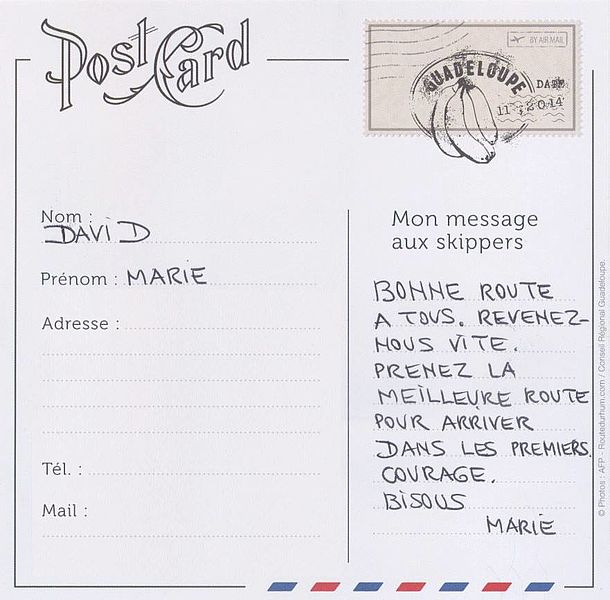 Post Card
BY AIR MAIL
GUADELOUPE
DATE
11, 2014
Nom :
DAVID
Prénom : MARIE
Adresse :
Tél. :
Mail :
Mon message
aux skippers
BONNE ROUTE
A TOUS. REVENEZ-
NOUS VITE.
PRENEZ LA
MEILLEURE ROUTE
POUR ARRIVER
DANS LES PREMIERS.
COURAGE.
BISOUS
MARIE
© Photos : AFP - Routedurhum.com / Conseil Régional Guadeloupe.